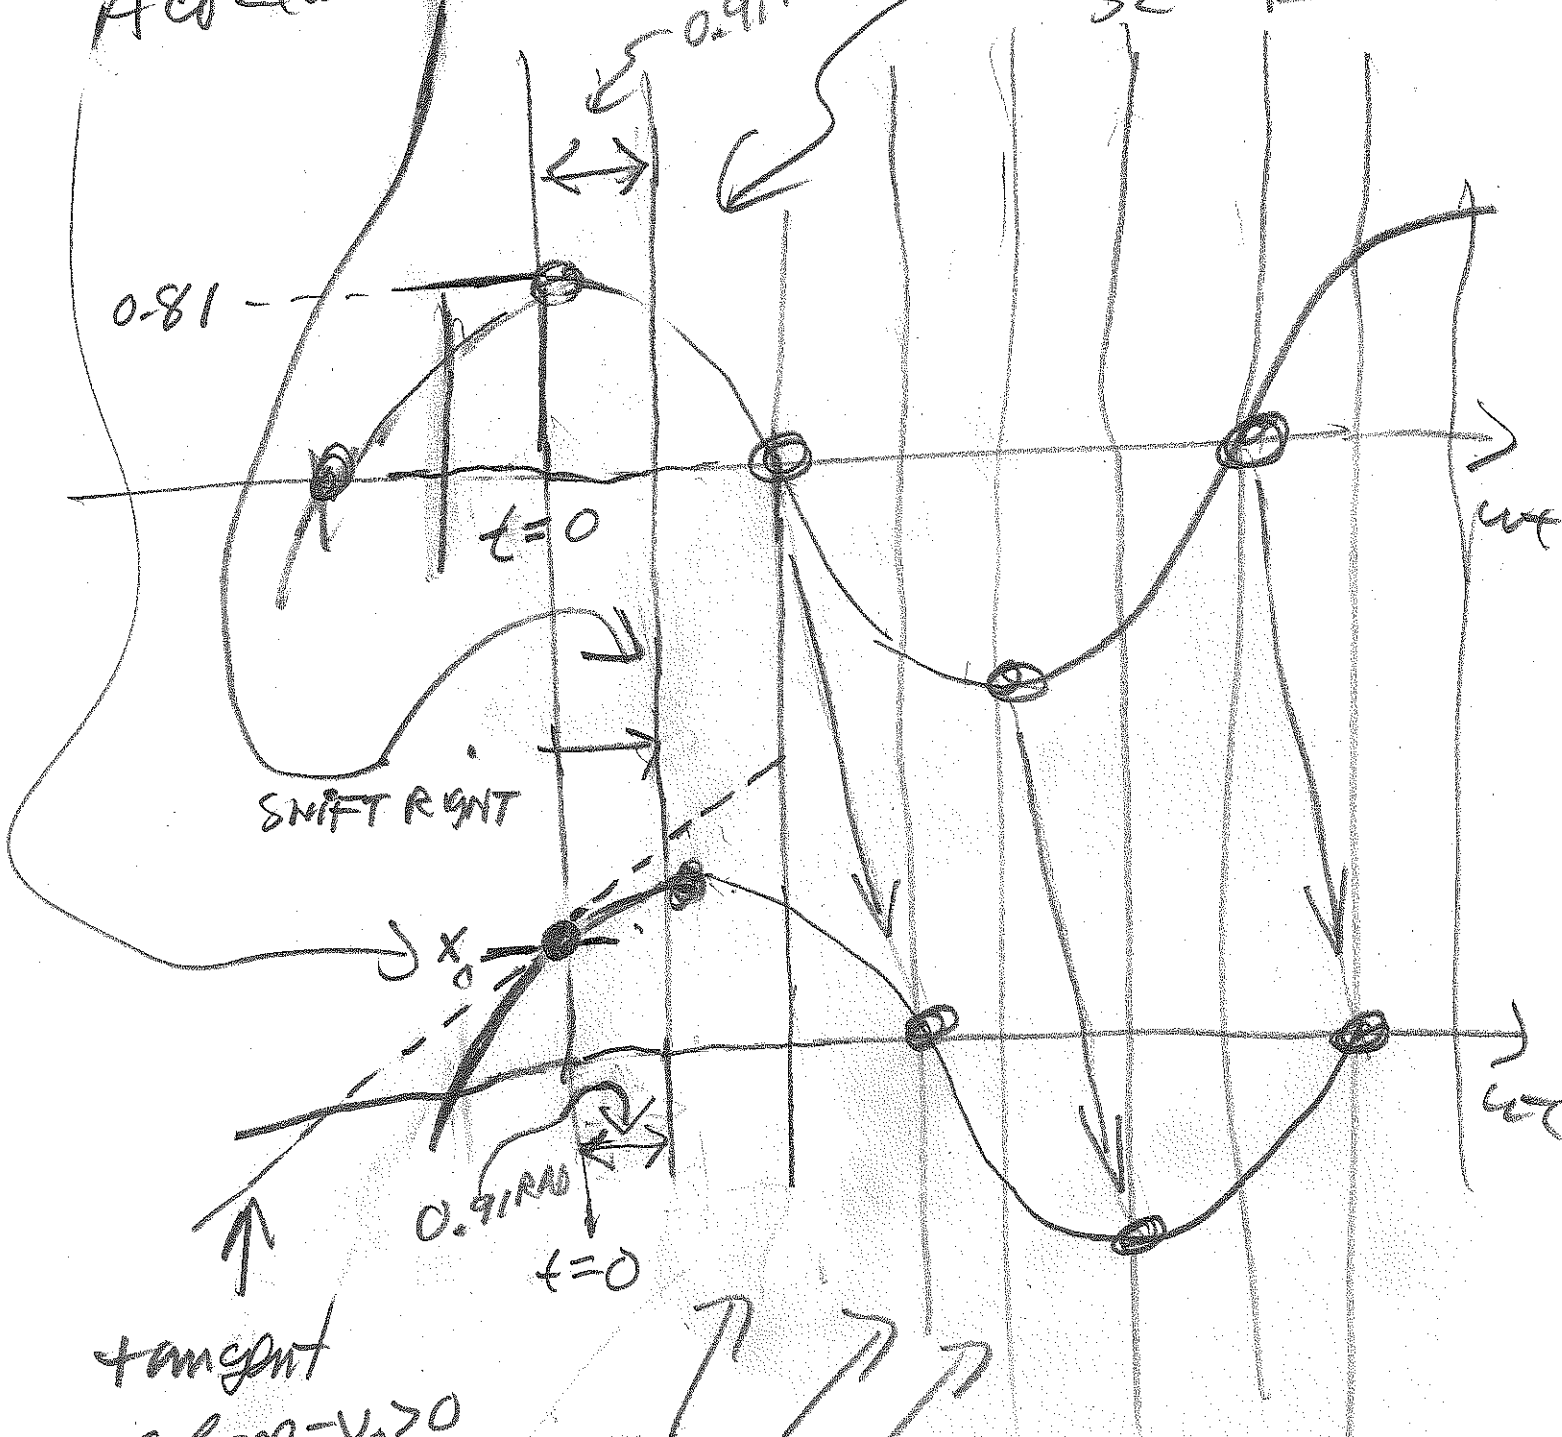 0.91
0.81
t=0
ωt
SHIFT RIGHT
x₀
ωt
0.91 RAD
t=0
tangent